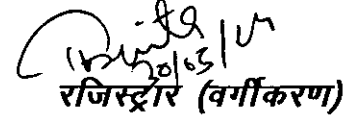 20/05/14
रजिस्ट्रार (वर्गीकरण)